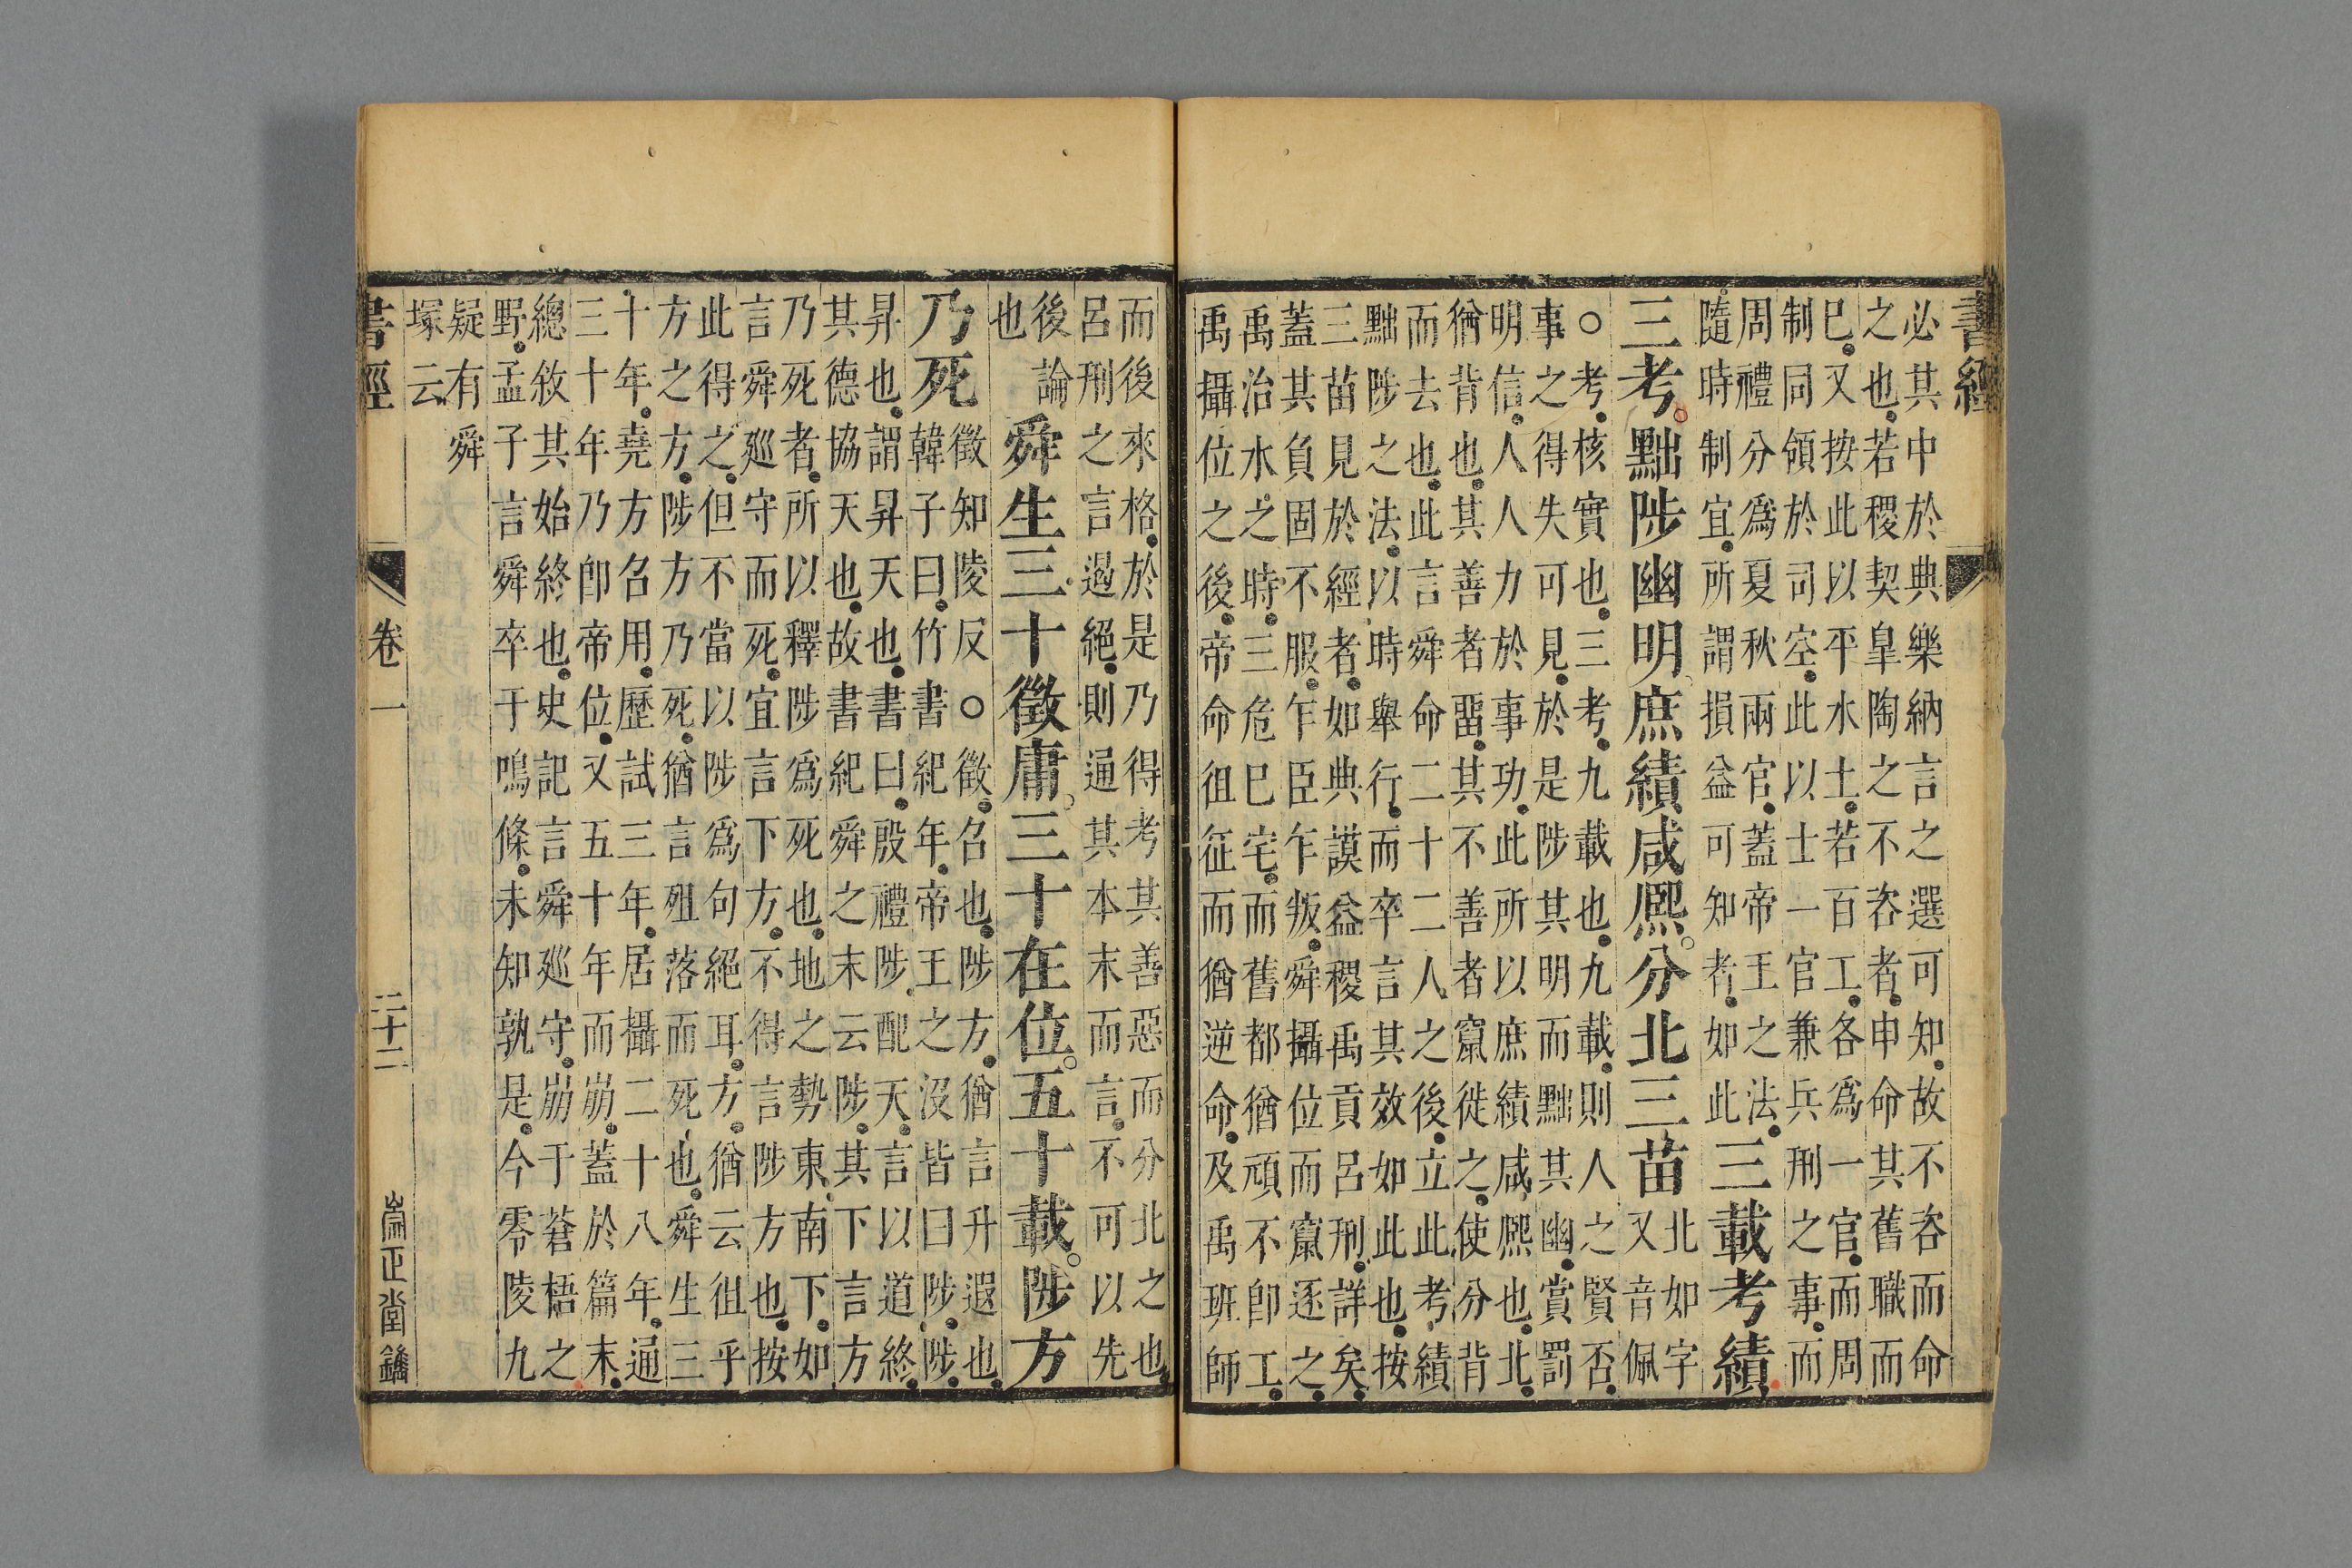 書經
必其中於典樂納言之選可知故不咨而命
之也若稷契皐陶之不咨者申命其舊職而
巳又按此以平水土若百工各爲一官而周
制同領於司空此以士一官兼兵刑之事而
周禮分爲夏秋兩官蓋帝王之法
隨時制宜所謂損益可知者如此
三載考績
三考黜陟幽明庶績咸熙分北三苗
北如字
又音佩
○考核實也三考九載也九載則人之賢否
事之得失可見於是陟其明而黜其幽賞罰
明信人人力於事功此所以庶績咸熙也北
猶背也其善者畱其不善者竄徙之使分背
而去也此言舜命二十二人之後立此考績
黜陟之法以時舉行而卒言其效如此也按
三苗見於經者如典謨益稷禹貢呂刑詳矣
蓋其負固不服乍臣乍叛舜攝位而竄逐之
禹治水之時三危巳宅而舊都猶頑不卽工
禹攝位之後帝命徂征而猶逆命及禹班師
而後來格於是乃得考其善惡而分北之也
呂刑之言遏絕則通其本末而言不可以先
後論
也
舜生三十徵庸三十在位五十載陟方
乃死
徵知陵反○徵召也陟方猶言升遐也
韓子曰竹書紀年帝王之沒皆曰陟陟
昇也謂昇天也書曰殷禮陟配天言以道終
其德協天也故書紀舜之末云陟其下言方
乃死者所以釋陟爲死也地之勢東南下如
言舜廵守而死宜言下方不得言陟方也按
此得之但不當以陟爲句絕耳方猶云徂乎
方之方陟方乃死猶言殂落而死也舜生三
十年堯方召用歷試三年居攝二十八年通
三十年乃卽帝位又五十年而崩蓋於篇末
總敘其始終也史記言舜廵守崩于蒼梧之
野孟子言舜卒于鳴條未知孰是今零陵九
疑有舜
塚云
書經 卷一 二十二 崇正堂鐫